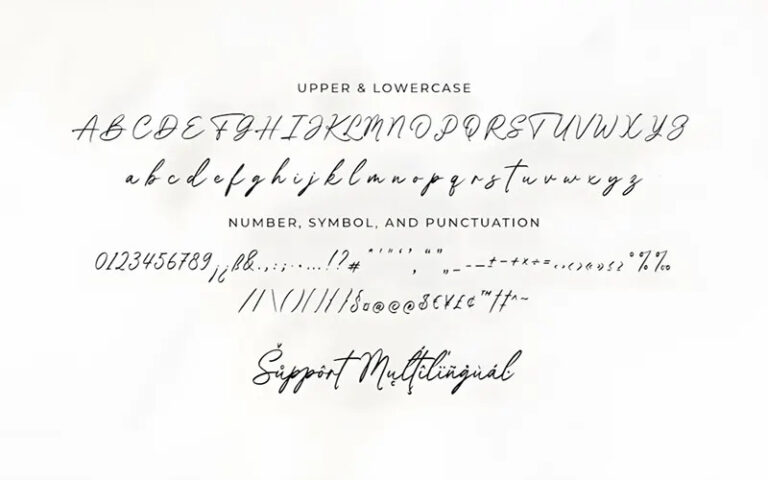 UPPER & LOWERCASE
A B C D E F G H I J K L M N O P Q R S T U V W X Y Z
a b c d e f g h i j k l m n o p q r s t u v w x y z
NUMBER, SYMBOL, AND PUNCTUATION
0123456789¡¿ß&.,:;·•…!?#*'"‘’,“”„_-–—±−+×÷=‹›<>«»≤≥°%‰
/|\()[]{}§¤@©®$€¥£¢™†‡^~
Šůppôrt Mųļţílïñġùáĺ